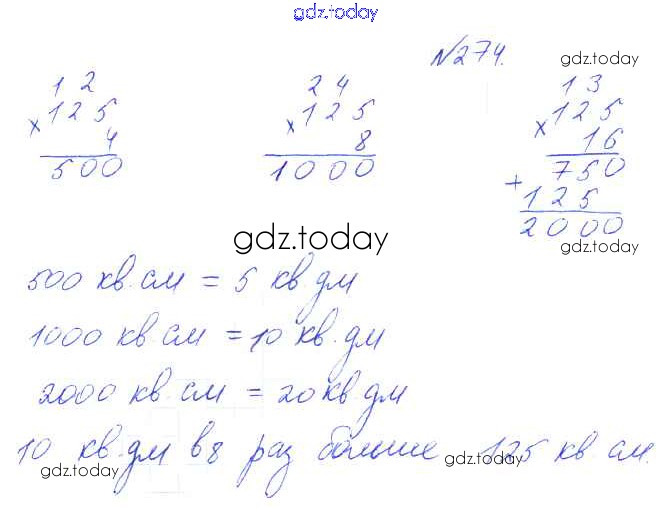 gdz.today
№274.
gdz.today
1 2
125
× 4
500
2 4
125
× 8
1000
1 3
125
× 16
750
+ 125
2000
gdz.today
gdz.today
500 кв.см = 5 кв.дм
1000 кв.см = 10 кв.дм
2000 кв.см = 20 кв дм
10 кв.дм в 8 раз больше 125 кв см.
gdz.today
gdz.today